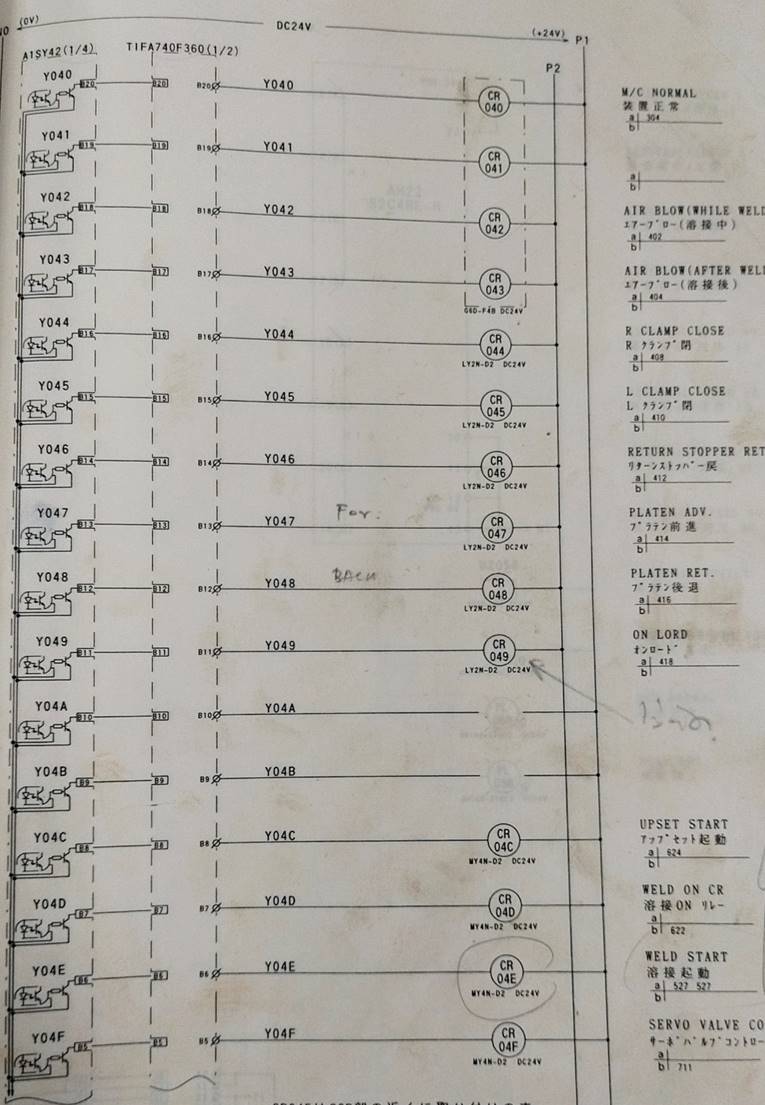 (0V) DC24V (+24V) P1
A1SY42(1/4) TIFA740F360(1/2) P2
Y040 B20 B20 B20 Y040 CR 040
M/C NORMAL
装置正常
a 304
b
Y041 B19 B19 B19 Y041 CR 041
a
b
Y042 B18 B18 B18 Y042 CR 042
AIR BLOW(WHILE WELD
エアーブロー(溶接中)
a 402
b
Y043 B17 B17 B17 Y043 CR 043
G6D-F4B DC24V
AIR BLOW(AFTER WEL
エアーブロー(溶接後)
a 404
b
Y044 B16 B16 B16 Y044 CR 044
LY2N-D2 DC24V
R CLAMP CLOSE
R クランプ閉
a 408
b
Y045 B15 B15 B15 Y045 CR 045
LY2N-D2 DC24V
L CLAMP CLOSE
L クランプ閉
a 410
b
Y046 B14 B14 B14 Y046 CR 046
LY2N-D2 DC24V
RETURN STOPPER RET
リターンストッパー戻
a 412
b
Y047 B13 B13 B13 Y047 For. CR 047
LY2N-D2 DC24V
PLATEN ADV.
プラテン前進
a 414
b
Y048 B12 B12 B12 Y048 BACK CR 048
LY2N-D2 DC24V
PLATEN RET.
プラテン後退
a 416
b
Y049 B11 B11 B11 Y049 CR 049
LY2N-D2 DC24V
ON LORD
オンロード
a 418
b
Y04A B10 B10 B10 Y04A
Y04B B9 B9 B9 Y04B
Y04C B8 B8 B8 Y04C CR 04C
MY4N-D2 DC24V
UPSET START
アップセット起動
a 624
b
Y04D B7 B7 B7 Y04D CR 04D
MY4N-D2 DC24V
WELD ON CR
溶接ON リレー
a
b 622
Y04E B6 B6 B6 Y04E CR 04E
MY4N-D2 DC24V
WELD START
溶接起動
a 527 527
b
Y04F B5 B5 B5 Y04F CR 04F
MY4N-D2 DC24V
SERVO VALVE CO
サーボバルブコントロー
a
b 711